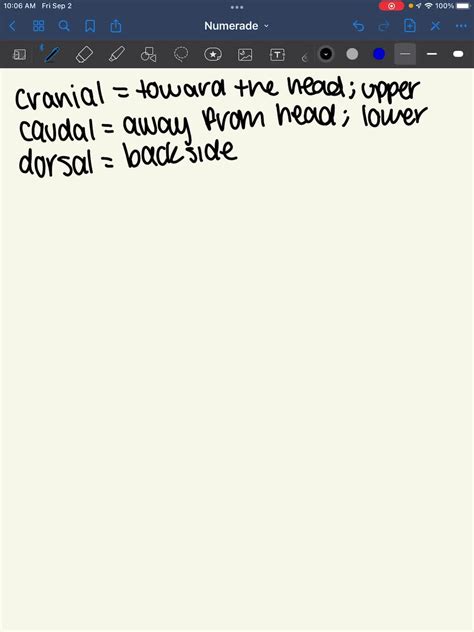 10:06 AM Fri Sep 2
100%
Numerade
T
cranial = toward the head; upper
caudal = away from head; lower
dorsal = backside